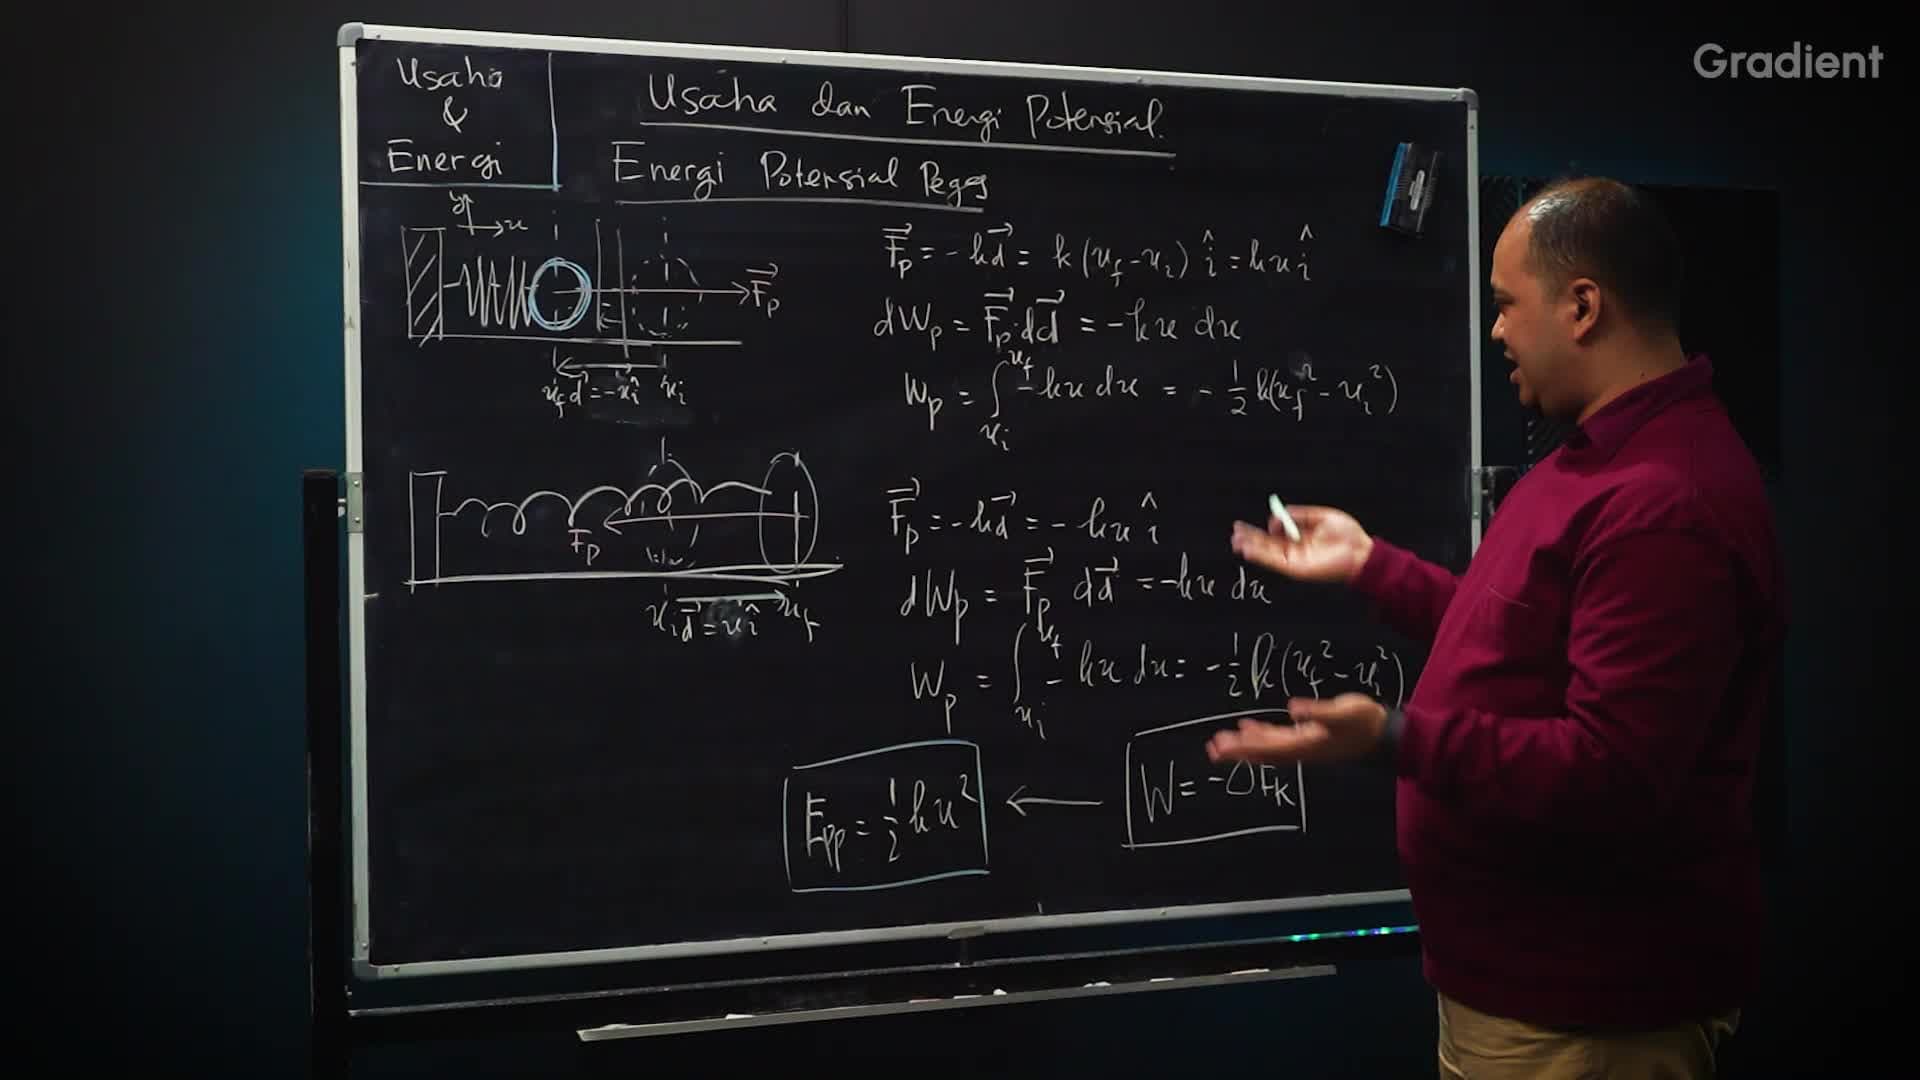 Gradient
Usaha
&
Energi
Usaha dan Energi Potensial.
Energi Potensial Pegas
y x
F⃗p
x_f d⃗ = -xî x_i
F⃗p = -kd⃗ = k(x_f - x_i) î = kx î
dWp = F⃗p·dd⃗ = -kx dx
Wp = ∫_{x_i}^{x_f} -kx dx = -½ k(x_f² - x_i²)
Fp
x_i d⃗ = xî x_f
F⃗p = -kd⃗ = -kx î
dWp = F⃗p dd⃗ = -kx dx
Wp = ∫_{x_i}^{x_f} -kx dx = -½ k(x_f² - x_i²)
Epp = ½ kx² ← W = -ΔEk